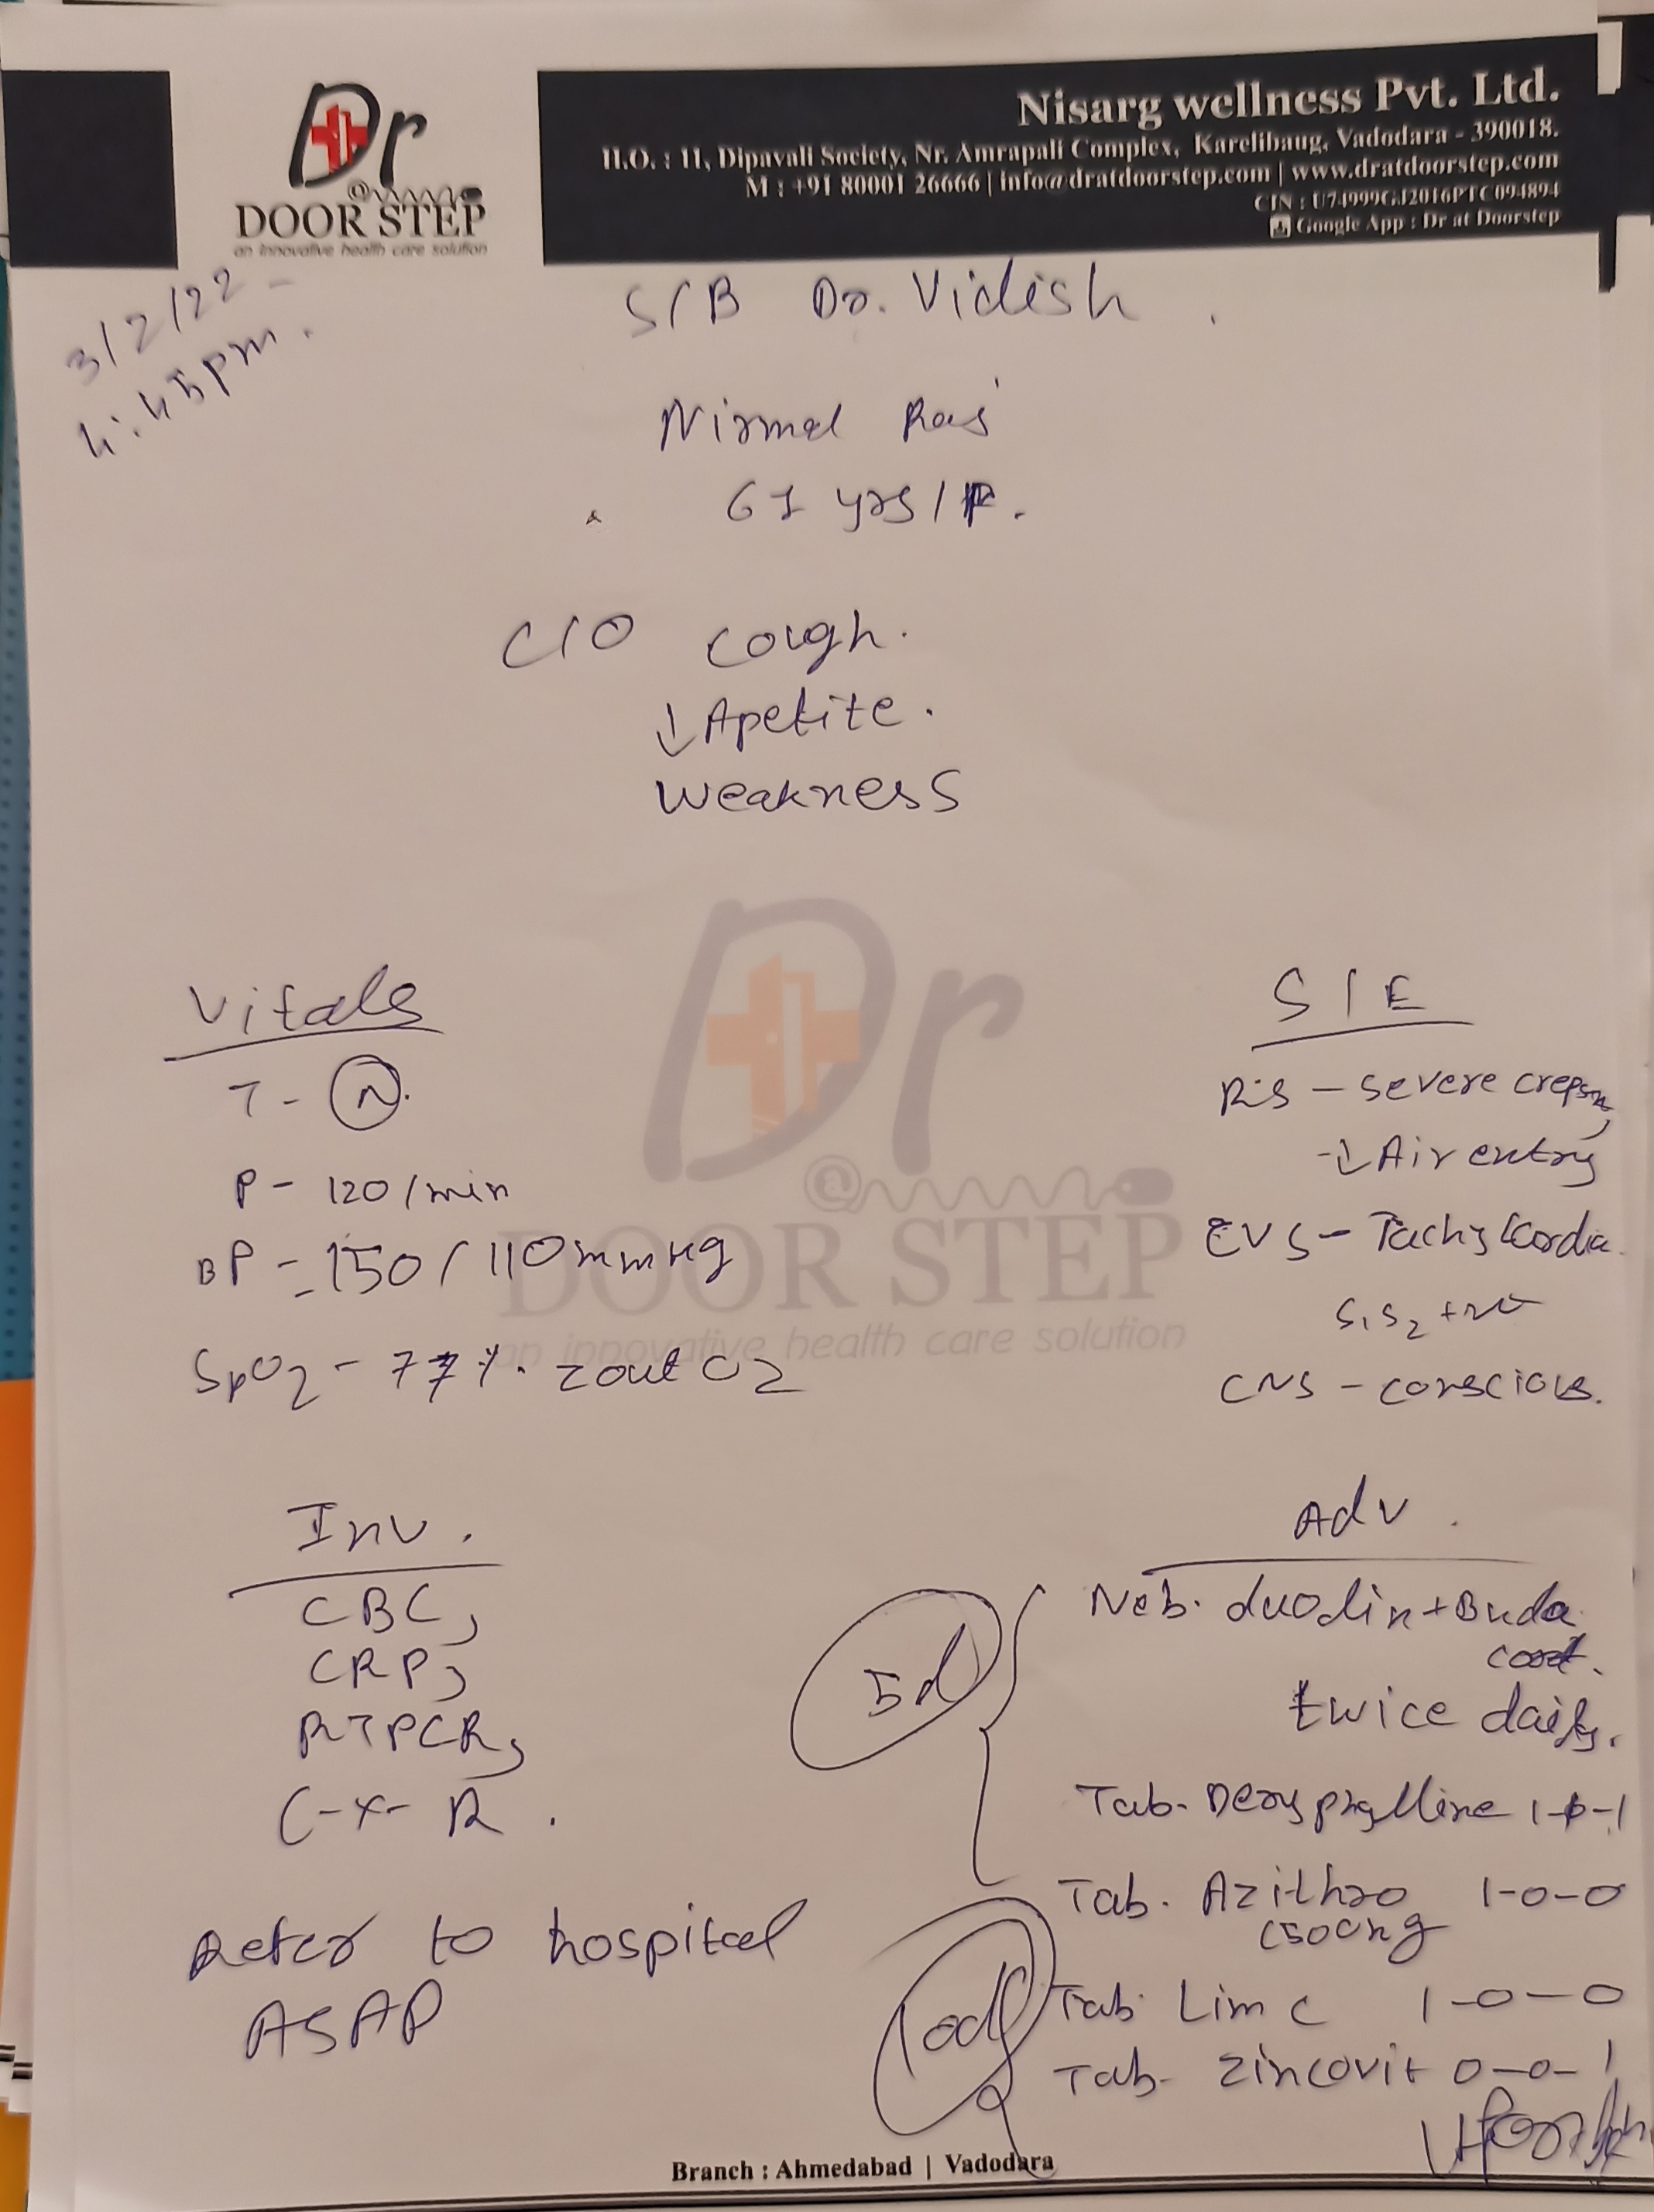 Dr
@
DOOR STEP
an innovative health care solution
Nisarg wellness Pvt. Ltd.
H.O. : 11, Dipavali Society, Nr. Amrapali Complex, Karelibaug, Vadodara - 390018.
M : +91 80001 26666 | info@dratdoorstep.com | www.dratdoorstep.com
CIN : U74999GJ2016PTC094894
Google App : Dr at Doorstep
3/2/22
4:45pm.
S/B Dr. Vidish
Nirmal
61 yrs/F.
C/O Cough.
↓ Apetite.
Weakness
Dr
@
DOOR STEP
an innovative health care solution
Vitals
T - N.
P - 120/min
BP - 150/110mmHg
SpO2 - 77%. out O2
S/E
RS - severe
-↓ Air entry
CVS - Tachycardia
S1S2 +
CNS - conscious.
Inv.
CBC,
CRP,
RTPCR,
C-X-R.
Refer to hospital
ASAP
Adv.
5d
Neb. duolin + Buda
cort.
twice daily.
Tab. Deryphylline 1-0-1
Tab. Azithro 1-0-0
(500mg
10d
Tab. Lim c 1-0-0
Tab. Zincovit 0-0-1
Branch : Ahmedabad | Vadodara